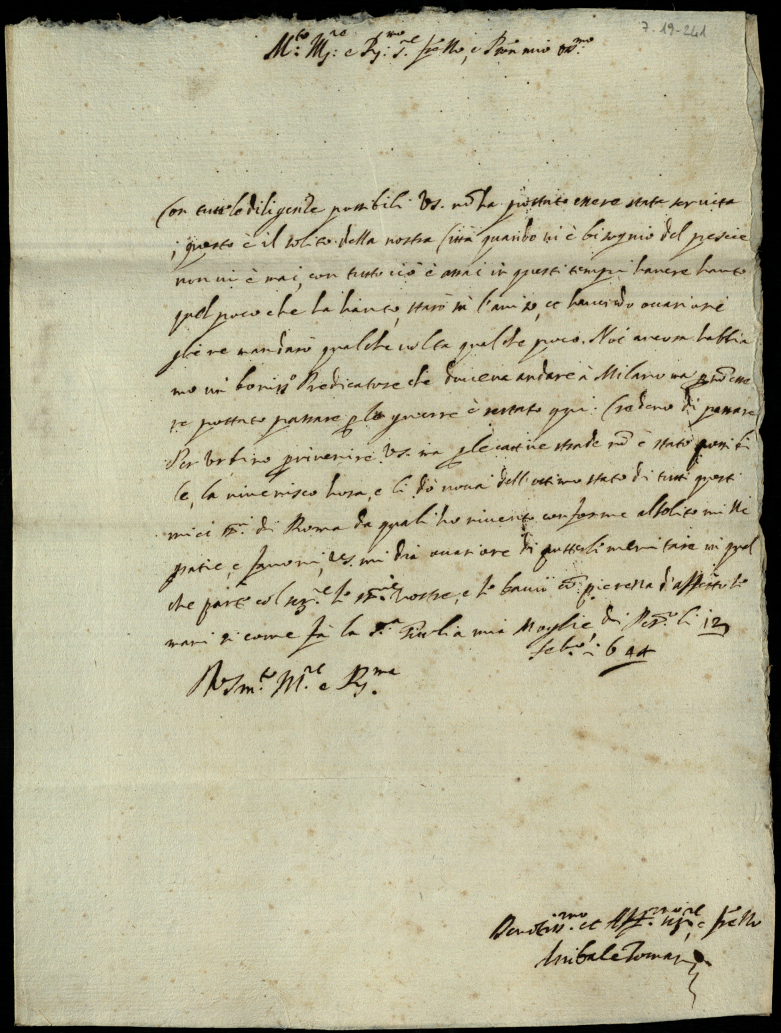 7-19-241
M.to Ill.re e R.mo S.re fr̃ello, e Pron mio oss.mo
Con tutte le diligenze possibili VS. nõ ha possuto essere stata servita
; questo è il solito della nostra Città quando vi è bisognio del pescie
non vi è mai, con tutto ciò è assai in questi tempi havere hauto
quel poco che ha hauto, starò sù l'aviso, et havendo ocasione
gliene mandarò qualche volta qualche poco. Noi ancora habbia
mo un boniss.o Predicatore che doveva andare à Milano ma p nõ esse
re possuto passare p le guerre è restato qui. Credevo di passare
Per Urbino p rivenire VS. ma p le cattive strade nõ è stato possibi
le, la riverisco hora, e li dò nova dell'ottimo stato di tutti questi
miei SS.ri di Roma da quali ho riceuto conforme al solito mille
gratie, e favori, VS. mi dia ocasione di posserli meritare in qual
che parte col ser.re le SS.rie vostre, e le bacio cõ pienezza d'affetto le
mani si come fà la S.ra Giulia mia Moglie di Pes.ro li 12
feb.ro 1644
VS m.to Ill.re e R.ma
Devotiss.mo et Aff.mo ser.re e fr̃ello
Anibale Tomasi